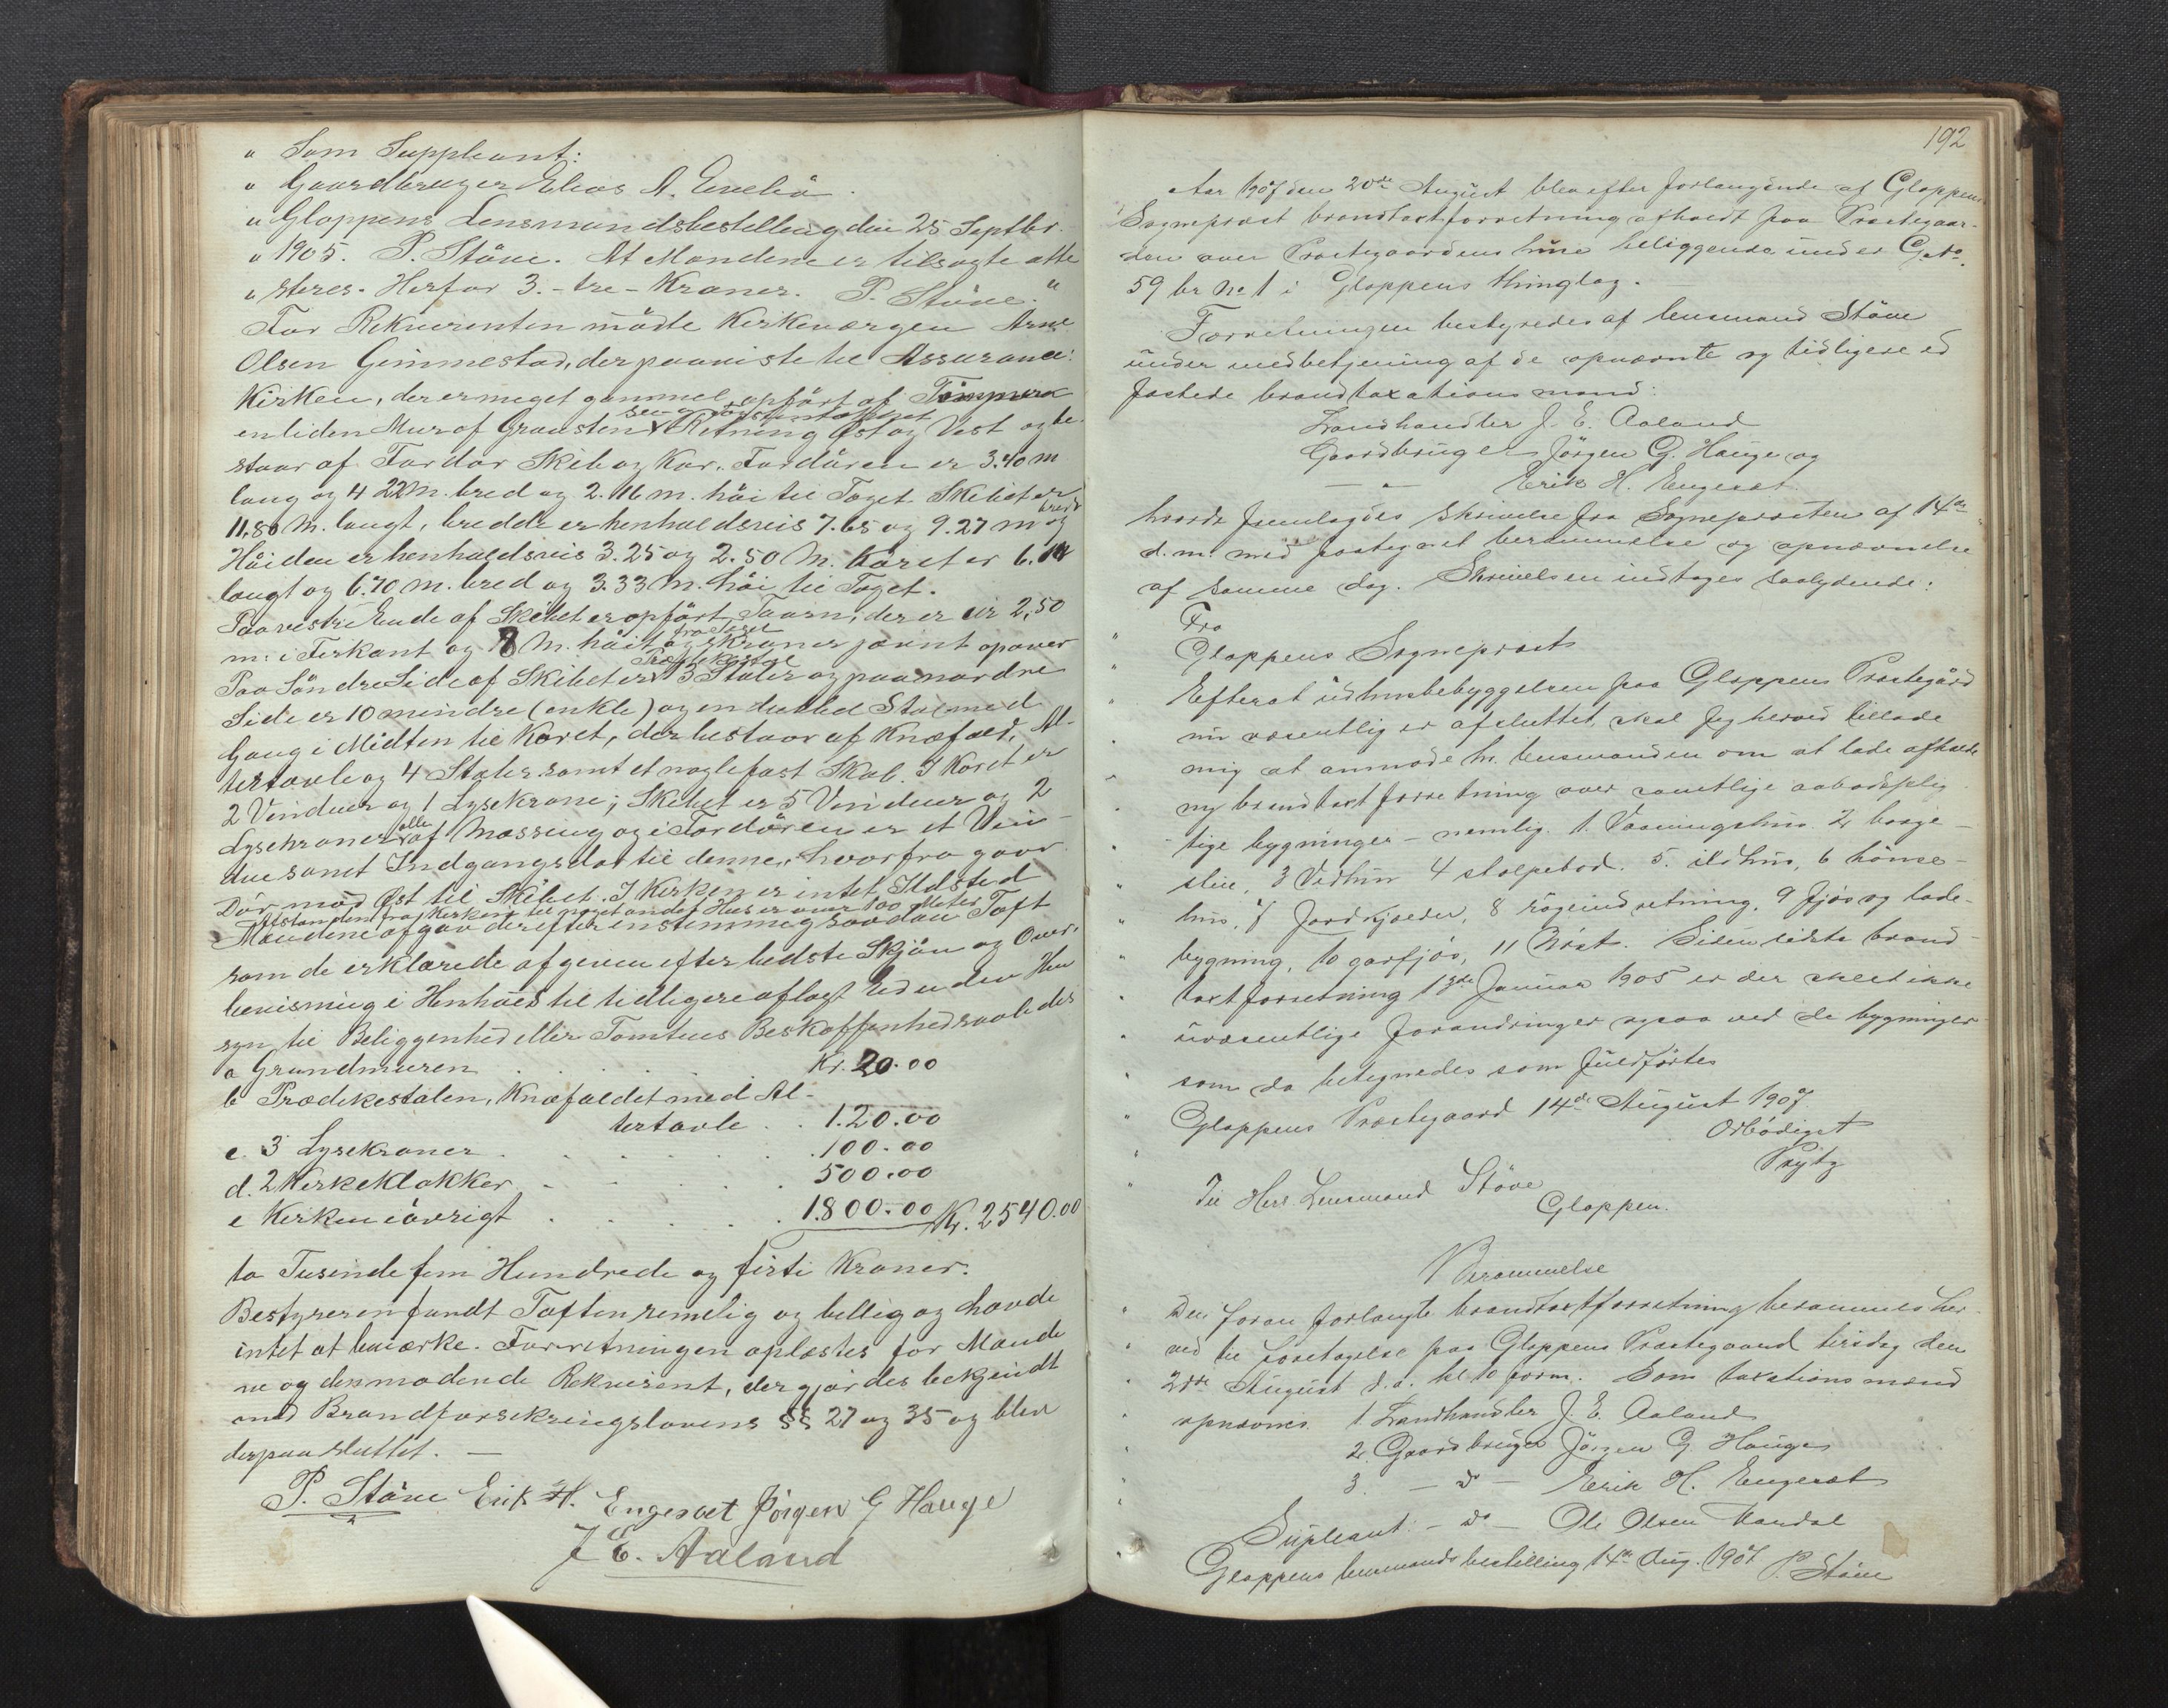 „ Som Suppleant:
„ Gaardbruger Elias A. Emeliö.
„ Gloppens Lensmandsbestilling den 25 Septbr.
„ 1905. P. Støve. At Mændene er tilsagte atte
„ steres. Herfor 3.- tre- Kroner. P. Støve."
For Rekvirenten mödte Kirkeværgen Arne
Olsen Gimmestad, der paaviste til Assurance:
Kirken, der er meget gammel, opført af Tømmer
en liden Mur af Graasten Retning Øst og Vest og be
staar af Fordør Skib og Kor. Fordøren er 3.40 m
lang og 4 22 M. bred og 2.16 m. høi til Taget. Skibet er
11,80 M. langt, bredde er henholdsvis 7.65 og 9.27 m og
Høiden er henholdsvis 3.25 og 2.50 M. Koret er 6.
langt og 6.70 m. bred og 3.33 M. høi til Taget.
Paa vestre Ende af Skibet er opført Taarn, der er 2,50
m: i Firkant og 8 M. høit fra Taget og skraner jævnt opover
Paa Söndre Side af Skibet er Præstestol 3 Stoler og paa nordre
Side er 10 mindre (enkle) og en dobbel Stol med
Gang i Midten til Koret, der bestaar af Knæfald, Al-
tertavle og 4 Stoler samt et naglefast Skab. I Koret er
2 Vinduer og 1 Lysekrone; Skibet er 5 Vinduer og 2
Lysekroner alle af Messing og i Fordøren er et Vin-
due samt Indgangsdør til denne, hvorfra gaar
Dør mod Øst til Skibet. I Kirken er intet Ildsted
Afstanden fra Kirken til noget andet Hus er over 100 Meter
Mændene afgav derefter enstemmig saadan Taxt
som de erklærede afgiven efter bedste Skjøn og Over-
bevisning i Henhold til tidligere aflagt Ed uden Hen
syn til Beliggenhed eller Tomtens Beskaffenhed saaledes
a Grundmuren . . . . . Kr. 20.00
b Prædikestolen, Knæfaldet med Al-
tertavle . . 120.00
c. 3 Lysekroner . . . . . . 100.00
d. 2 Kirkeklokker . . . . 500.00
e Kirken iøvrigt . . . . . 1800.00 Kr. 2540.00
to Tusinde fem Hundrede og firti Kroner.
Bestyreren fandt Taxten rimelig og billig og havde
intet at bemærke. Forretningen oplæstes for Mænde
ne og den mødende Rekvirent, der gjordes bekjendt
med Brandforsikringslovens §§ 27 og 35 og blev
derpaa sluttet. —
P. Støve Erik H. Engeset Jørgen G Hauge
J E. Aaland
192
Aar 1907 den 20de August blev efter forlangende af Gloppens
Sogneprest brandtaxtforretning afholdt paa Prestegaar-
den over Prestegaardens huse beliggende under G.No.
59 br No 1 i Gloppens thinglag.
Forretningen bestyredes af lensmand Støve
under medbetjening af de opnævnte og tidligere ed
fæstede brandtaxationsmænd:
Landhandler J. E. Aaland
Gaardbruger Jørgen G. Hauge og
— „ — Erik H. Engeset
hvorda fremlagdes skrivelse fra Sognepresten af 14de
d. m. med paategnet berammelse og opnævnelse
af samme dag. Skrivelsen indtages saalydende:
„ Fra
„ Gloppens Sogneprest
„ Efterat udhusbebyggelsen paa Gloppens Prestegård
„ nu væsentlig er afsluttet, skal Jeg herved tillade
„ mig at anmode hr. lensmanden om at lade afholde
„ ny brandtaxtforretning over samtlige aabodsplig
„ tige bygninger - nemlig. 1. Vaaningshus. 2 borge-
„ stue, 3 Vedhus 4 stolpebod. 5. ildhus, 6 hønse-
„ hus, 7 Jordkjælder, 8 røgeindretning, 9 fjøs og lade-
„ bygning, 10 garfjøs, 11 Nøst. Siden sidste brand-
„ taxtforretning 13de Januar 1905 er der skeet ikke
„ uvæsentlige forandringer ogsaa ved de bygninger
„ som da betegnedes som fuldførtes
„ Gloppens Prestegaard 14de August 1907.
Ærbødigst
Prytz
„ Til Herr Lensmand Støve
Gloppen.
Berammelse
„ Den foran forlangte brandtaxtforretning berammes her-
„ ved til foretagelse paa Gloppens Prestegaard tirsdag den
„ 20de August d.a. kl 10 form. Som taxationsmænd
„ opnævnes 1. Landhandler J. E. Aaland
2. Gaardbruger Jørgen G. Hauge
3. — do — Erik H. Engeset
Supleant: — do — Ole Olsen Mandal
Gloppens lensmandsbestilling 14de Aug. 1907 P. Støve